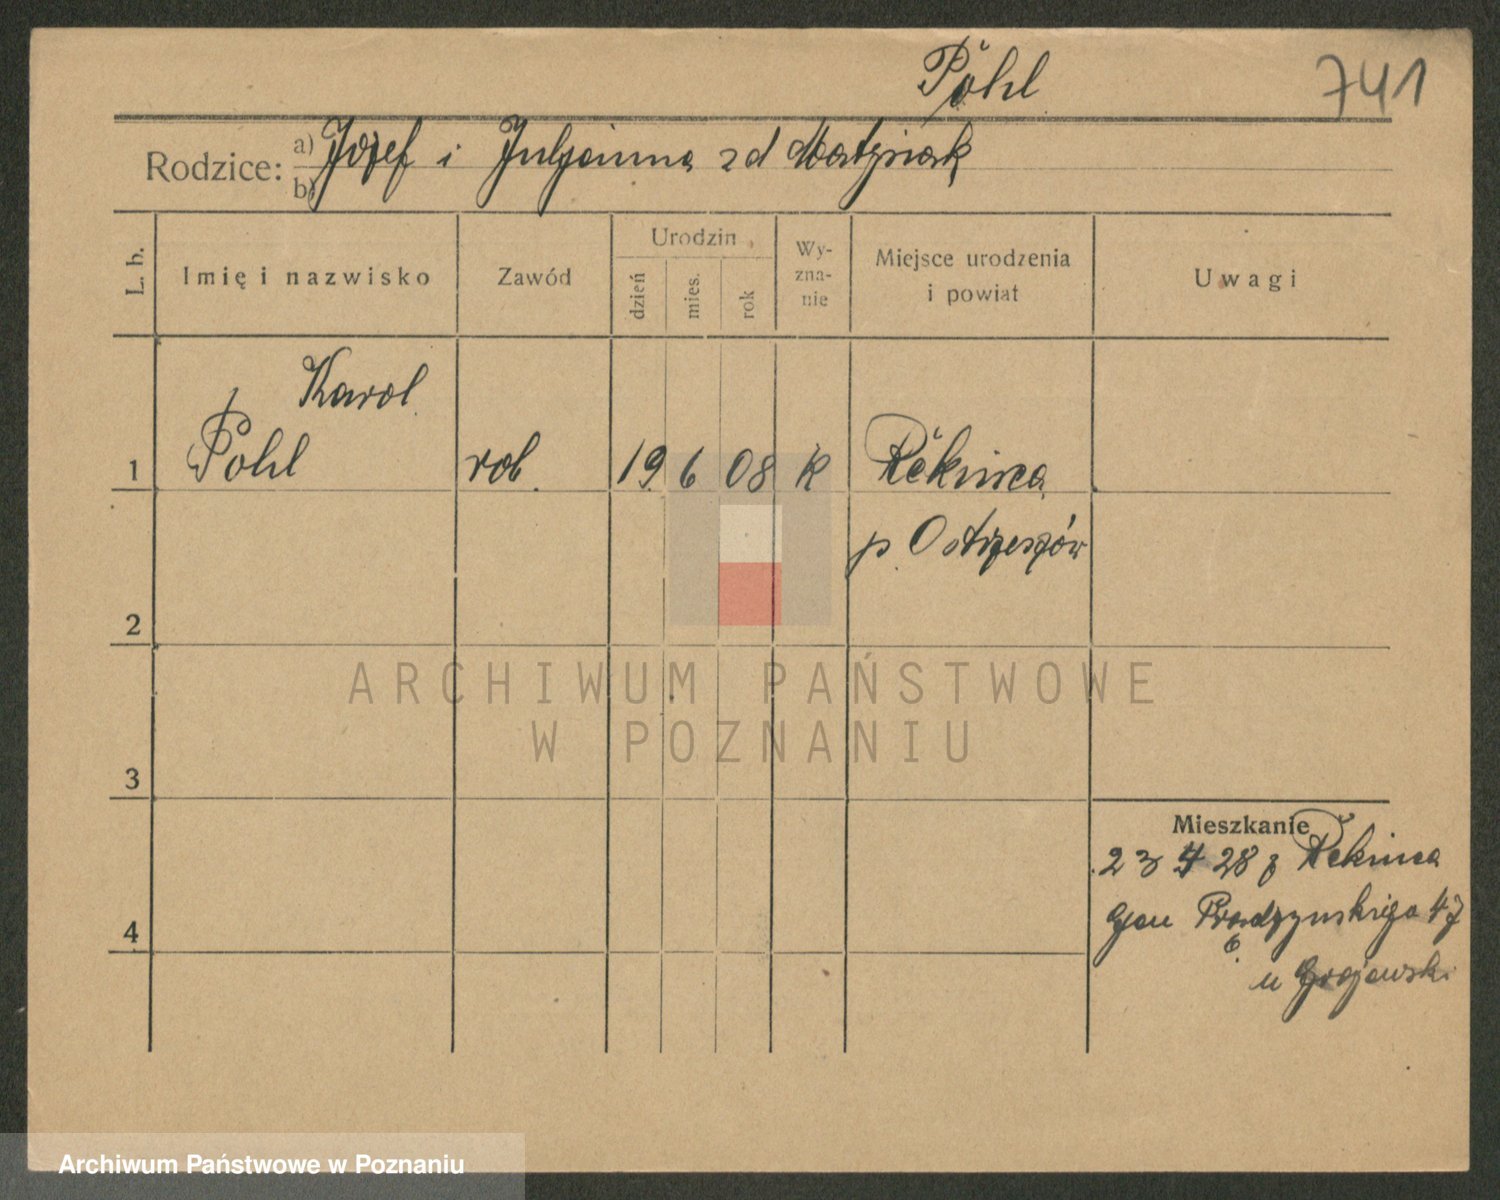 Pohl 741
Rodzice: a) Józef i Juljanna zd Matysiak
b)
L. b. Imię i nazwisko Zawód Urodzin dzień mies. rok Wy-zna-nie Miejsce urodzenia i powiat Uwagi
Karol
1 Pohl rob. 19 6 08 k
p. Ostrzeszów
2
3
4
Mieszkanie
23 4 28 z
47
6
u Grojewski
ARCHIWUM PAŃSTWOWE
W POZNANIU
Archiwum Państwowe w Poznaniu